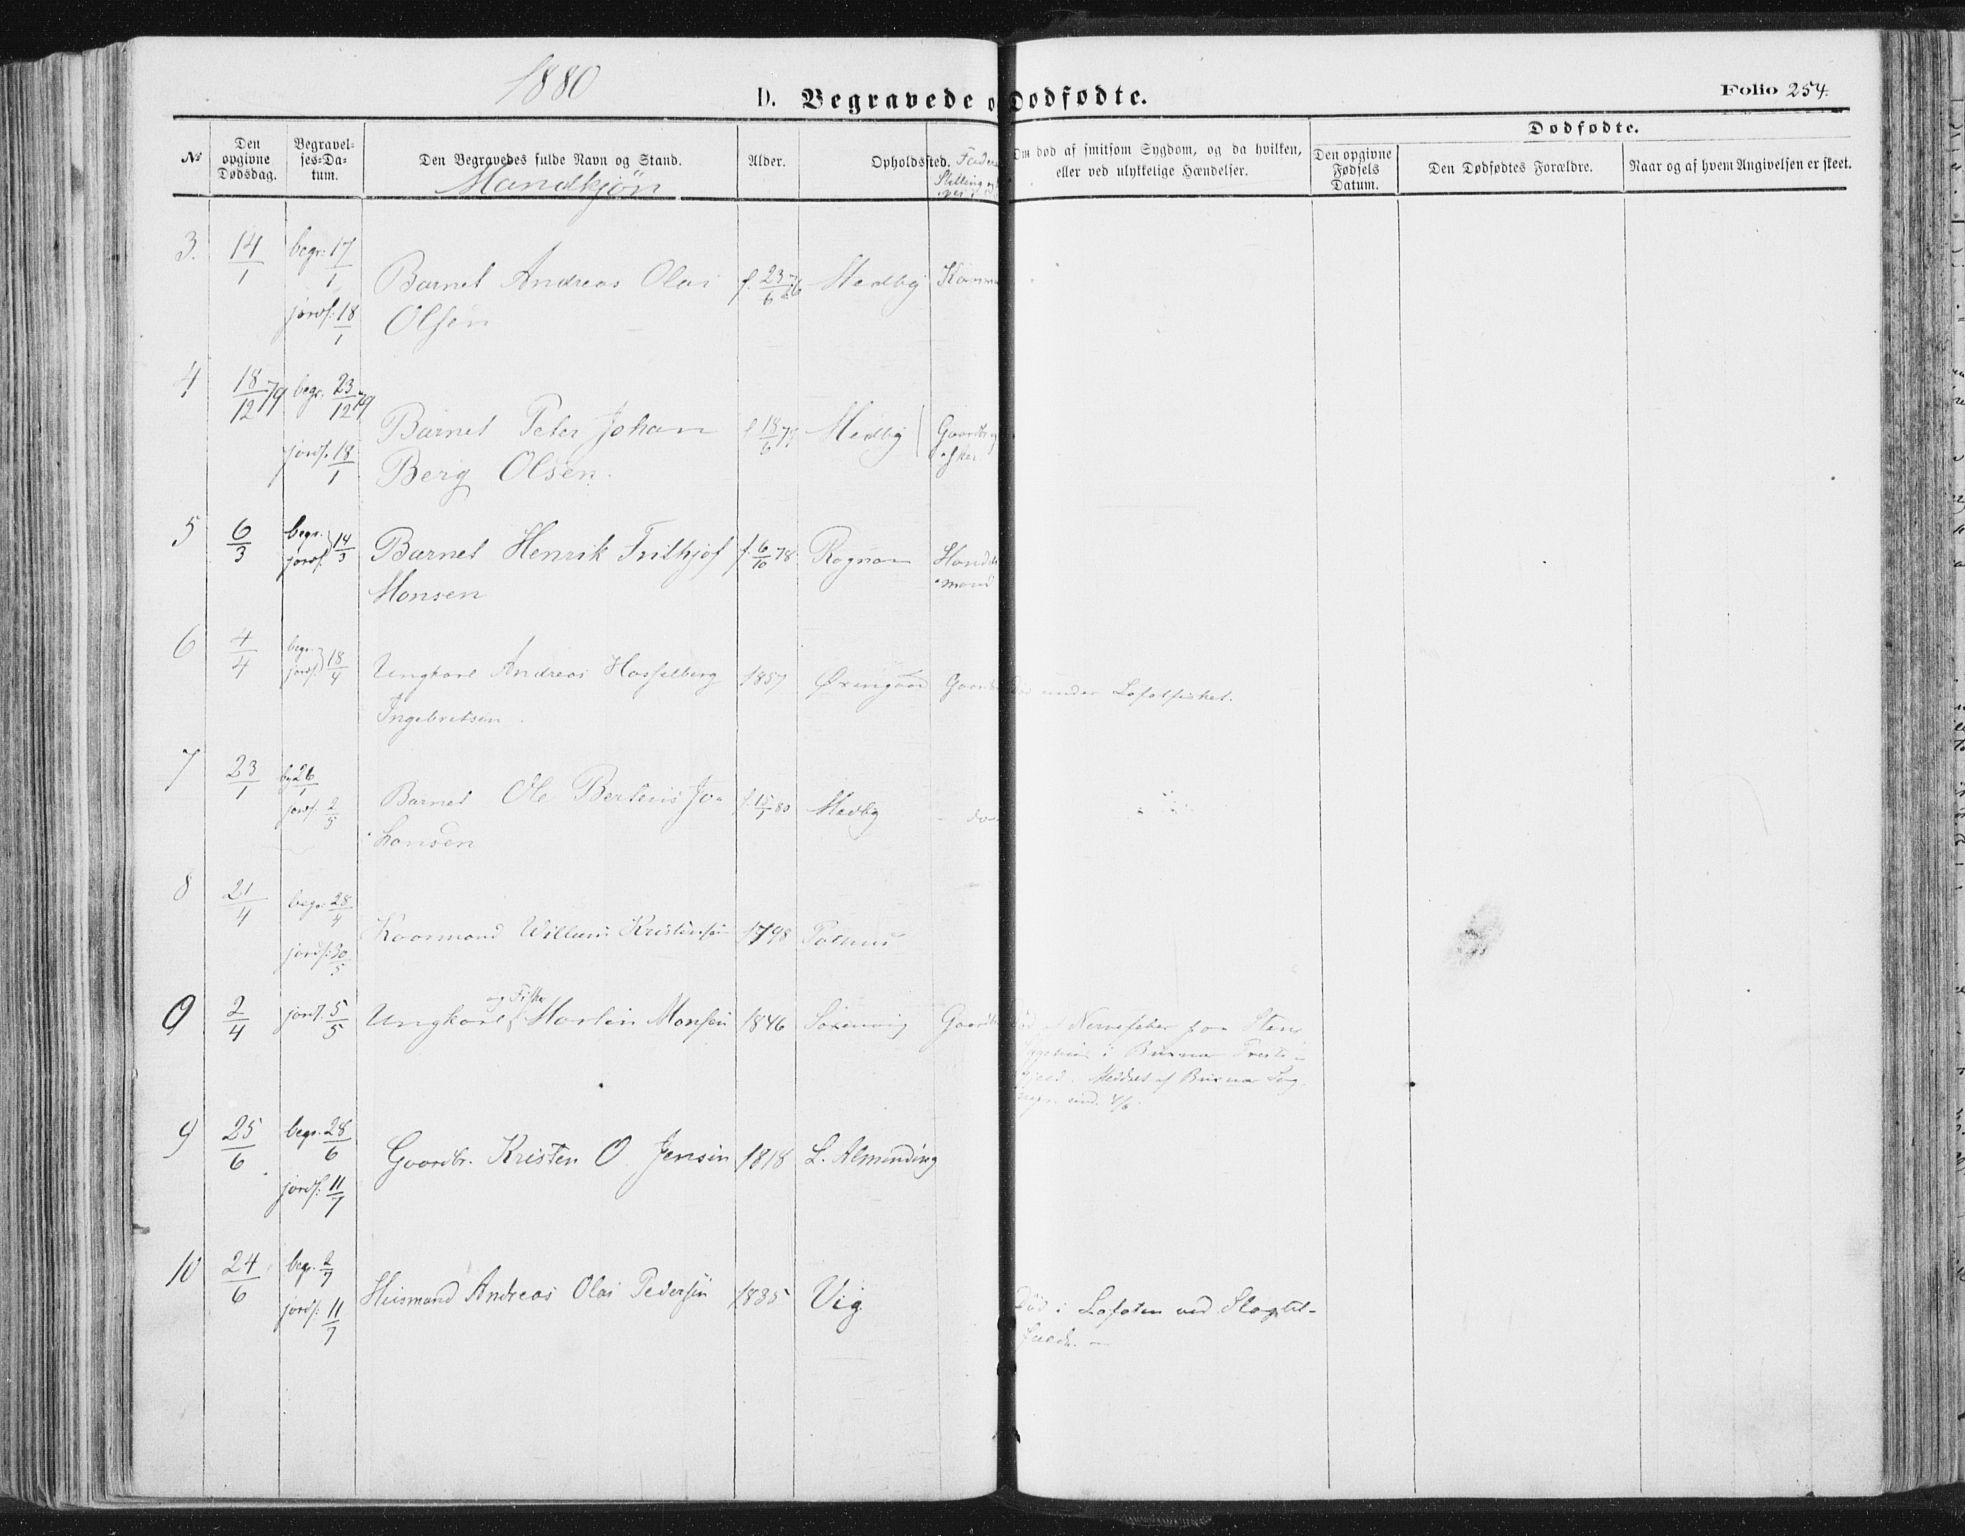 1880
D. Begravede o Dødfødte.
Folio 254.
Dødfødte.
No
Den opgivne Dødsdag.
Begravelses-Datum.
Den Begravedes fulde Navn og Stand.
Mandkjøn
Alder.
Opholdssted.
Om død af smitsom Sygdom, og da hvilken, eller ved ulykkelige Hændelser.
Den opgivne Fødsels Datum.
Den Dødfødtes Forældre.
Naar og af hvem Angivelsen er skeet.
3. 14/1 begr: 17/1 jordf: 18/1 Barnet Andreas Olai f. 23/6 76 Medby
Olsen
4 18/12 79 begr. 23/12 79 jordf. 18/1 Barnet Peter Johan f 18/6 79 Medby
Berg Olsen.
5 6/3 begr. jordf. 14/3 Barnet Henrik Frithjof f. 6/10 78 Rognan
Monsen
6 4/4 begr. jordf. 18/4 Ungkarl Andreas Hasselberg 1857 Øxengaard Gaardb under Lofotfisket.
Ingebretsen.
7 23/1 26/1 jordf. 2/5 Barnet Ole Berteus Jo- f. 15/1 80 Medby do
hansen
8 21/4 begr. 28/4 jordf: 30/5 Kaarmand Willum Kristensen 1798
og Fisker
9 2/4 jordf. 5/5 Ungkarl Martin Monsen 1846 Saxenvig Gaardb Nervefeber paa
i Buxnæs Præste-
gjeld. Meddelt af Buxnæs Sog-
9 25/6 begr. 28/6 jordf: 11/7 Gaardbr. Kristen O. Jensen 1818 L. Almending
10 24/6 begr. 2/7 jordf: 11/7 Husmand Andreas Olai Pedersen 1835 Vig Død i Lofoten ved Slagtil-
fælde. —